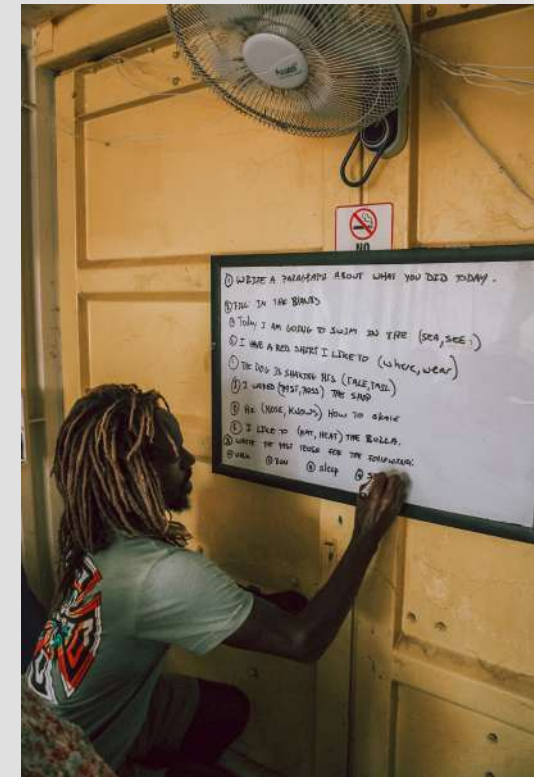 NO
① WRITE A PARAGRAPH ABOUT WHAT YOU DID TODAY.
② FILL IN THE BLANKS
ⓐ Today I AM GOING TO SWIM IN THE (SEA, SEE.)
ⓑ I HAVE A RED SHIRT I LIKE TO (where, wear)
THE DOG IS SHAKING HIS (TALE, TAIL)
I WALKED (PAST, PASS) THE SHOP
HE (NOSE, KNOWS) HOW TO SKATE
I LIKE TO (EAT, HEAT) THE BULLA.
③ WRITE THE PAST TENSE FOR THE FOLLOWING:
RUN sleep